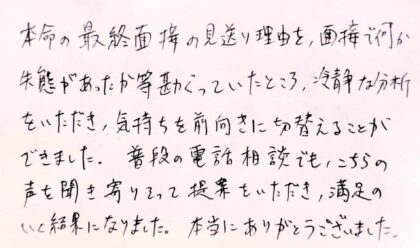 本命の最終面接の見送り理由を，面接で何か
失態があったか等勘ぐっていたところ，冷静な分析
をいただき，気持ちを前向きに切替えることが
できました。普段の電話相談でも，こちらの
声を聞き寄りそって提案をいただき，満足の
いく結果になりました。本当にありがとうございました。